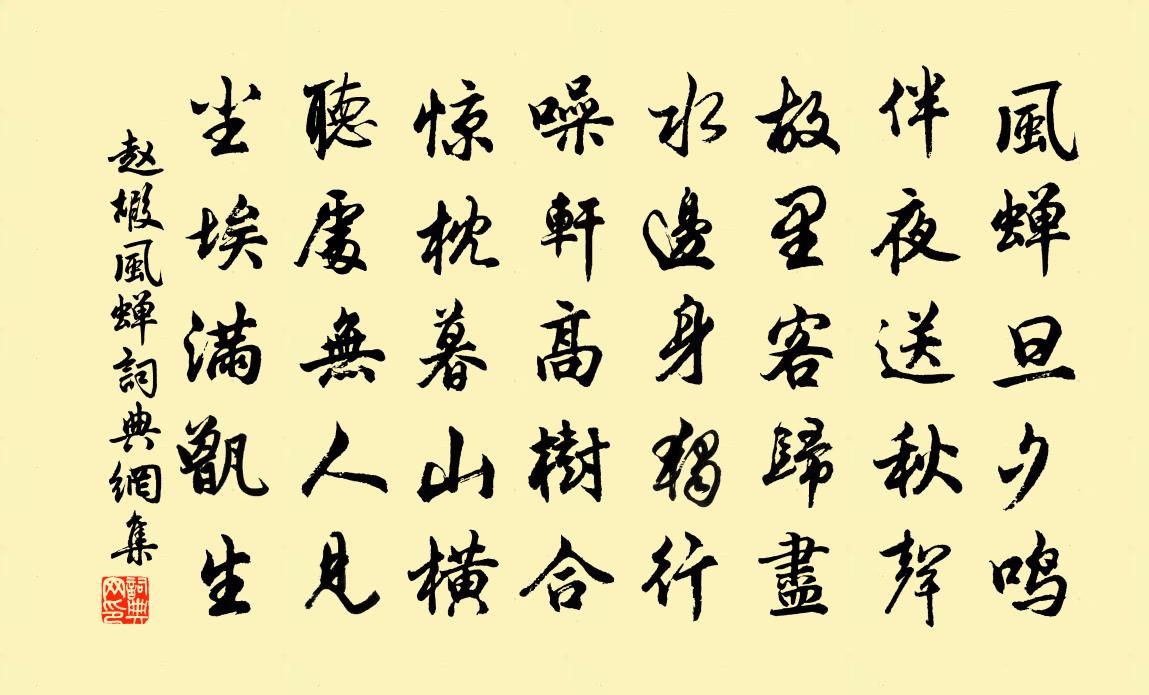 風蝉旦夕鸣
伴夜送秋聲
故里客歸盡
水邊身獨行
噪軒高樹合
惊枕暮山橫
聽處無人見
尘埃滿甑生
赵嘏風蝉詞典網集
詞典网印